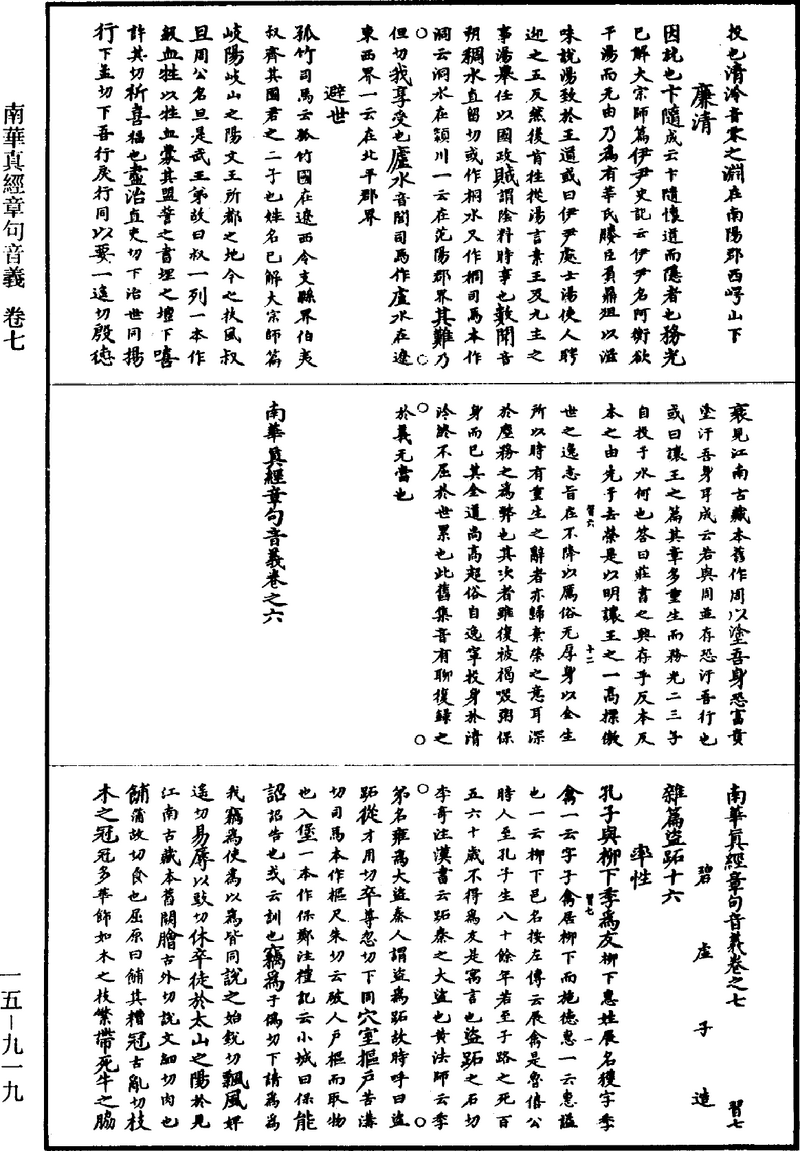 投也清泠音零之淵在南陽郡西崿山下
廉清
因託也卞隨成云卞隨懷道而隱者也務光
已解大宗師篇伊尹史記云伊尹名阿衡欲
干湯而无由乃為有莘氏媵臣負鼎俎以滋
味說湯致於王道或曰伊尹處士湯使人聘
迎之五反然後肯往從湯言素王及九主之
事湯舉任以國政賊謂陰科時事也數聞音
朔稠水直留切或作桐水又作榈司馬本作
洞云洞水在潁川一云在范陽郡界其難乃
但切我享受也廬水音閭司馬作盧水在遼
東西界一云在北平郡界
避世
孤竹司馬云孤竹國在遼西令支縣界伯夷
叔齊其國君之二子也姓名已解大宗師篇
岐陽岐山之陽文王所都之地今之扶風叔
旦周公名旦是武王弟故曰叔一列一本作
級血牲以牲血蒙其盟誓之書埋之壇下嘻
許其切祈喜福也盡治直吏切下治世同揚
行下孟切下吾行戾行同以要一遥切殷德
衰見江南古藏本舊作周以塗吾身恐富貴
塗汙吾身耳成云若與周並存恐汙吾行也
或曰讓王之篇其章多重生而務光二三子
自投于水何也答曰莊書之興存乎反本反
本之由先于去榮是以明讓王之一高標傲
世之逸志旨在不降以厲俗无厚身以全生
所以時有重生之辭者亦歸棄榮之意耳深
於塵務之為弊也其次者雖復被褐啜粥保
身而已其全道尚高超俗自逸寧投身於清
泠終不屈於世累也此舊集音有聊復錄之
於義无當也
南華真經章句音義卷之六
南華真經章句音義卷之七
碧虛子造
習七
雜篇盜跖十六
率性
孔子與柳下季為友柳下惠姓展名獲字季
禽一云字子禽居柳下而施德惠一云惠謚
也一云柳下邑名按左傳云展禽是魯僖公
時人至孔子生八十餘年若至子路之死百
五六十歲不得為友是寓言也盜跖之石切
李奇注漢書云跖秦之大盜也黄法師云季
弟名雍為大盜秦人謂盜為跖故時呼曰盜
跖從才用切卒尊忽切下同穴室摳户苦溝
切司馬本作樞尺朱切云破人户樞而取物
也入堡一本作保鄭注禮記云小城曰保能
詔詔告也或云訓也竊為于偽切下請為為
我竊為使為以為皆同說之始銳切飄風婢
遥切易辱以豉切休卒徒於太山之陽於見
江南古藏本舊闕膾古外切說文細切肉也
餔蒲故切食也屈原曰餔其糟冠古亂切枝
木之冠冠多華飾如木之枝繁帶死牛之脇
南華真經章句音義　卷七
一五－九一九